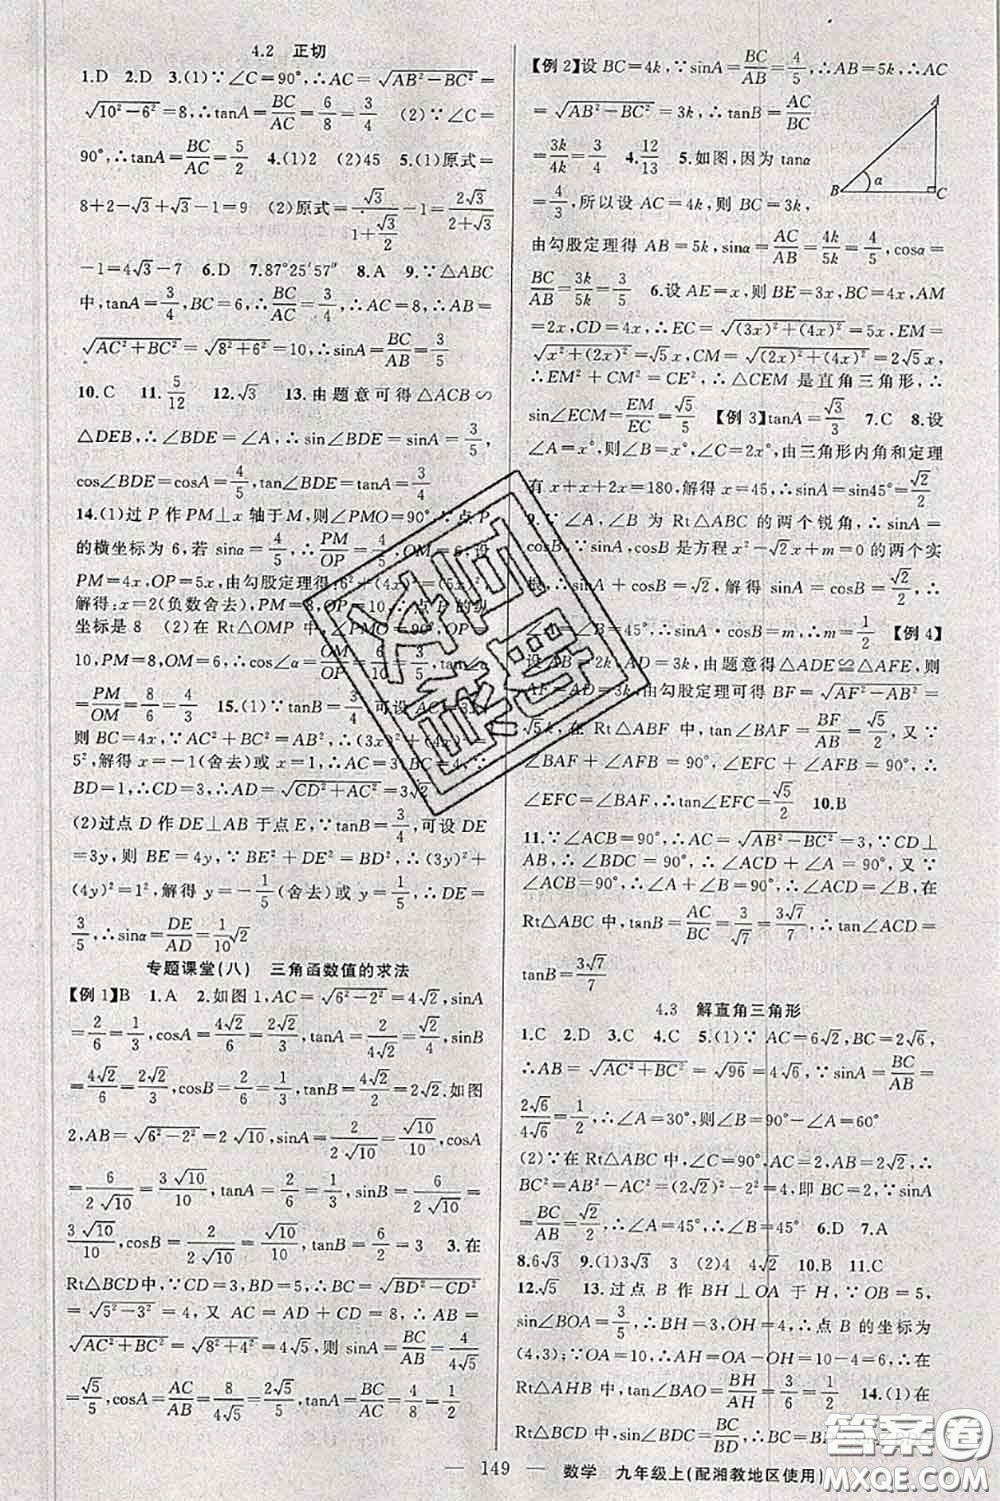 4.2 正切
1.D 2.D 3.(1)∵∠C=90°,∴AC=√(AB²-BC²)=
√(10²-6²)=8,∴tanA=BC/AC=6/8=3/4 (2)∵∠C=
90°,∴tanA=BC/AC=5/2 4.(1)2 (2)45 5.(1)原式=
8+2-√3+√3-1=9 (2)原式=√3/(1+√3/2)-1=2√3/(2+√3)
-1=4√3-7 6.D 7.87°25′57″ 8.A 9.∵△ABC
中,tanA=3/4,BC=6,∴BC/AC=3/4,∴AC=8,∴AB=
√(AC²+BC²)=√(8²+6²)=10,∴sinA=BC/AB=3/5
10.C 11.5/12 12.√3 13.由题意可得△ACB∽
△DEB,∴∠BDE=∠A,∴sin∠BDE=sinA=3/5,
cos∠BDE=cosA=4/5,tan∠BDE=tanA=3/4
14.(1)过P作PM⊥x轴于M,则∠PMO=90°∵点P
的横坐标为6,若sinα=4/5,∴PM/OP=4/5,∴OM=6∴设
PM=4x,OP=5x,由勾股定理得6²+(4x)²=(5x)²,
解得:x=2(负数舍去),PM=8,OP=10,∴点P的纵
坐标是8 (2)在Rt△OMP中,∠PMO=90°,OP=
10,PM=8,OM=6,∴cosα=6/10=3/5,tanα
=PM/OM=8/6=4/3 15.(1)∵tanB=3/4,可设AC=3x,
则BC=4x,∵AC²+BC²=AB²,∴(3x)²+(4x)²=
5²,解得x=-1(舍去)或x=1,∴AC=3,BC=4,∵
BD=1,∴CD=3,∴AD=√(CD²+AC²)=3√2
(2)过点D作DE⊥AB于点E,∵tanB=3/4,可设DE
=3y,则BE=4y,∵BE²+DE²=BD²,∴(3y)²+
(4y)²=1²,解得y=-1/5(舍去)或y=1/5,∴DE=
3/5,∴sinα=DE/AD=1/10√2
专题课堂(八) 三角函数值的求法
【例1】B 1.A 2.如图1,AC=√(6²-2²)=4√2,sinA
=2/6=1/3,cosA=4√2/6=2√2/3,tanA=2/4√2=√2/4,sinB=
4√2/6=2√2/3,cosB=2/6=1/3,tanB=4√2/2=2√2.如图
2,AB=√(6²-2²)=2√10,sinA=2/2√10=√10/10,cosA
=6/2√10=3√10/10,tanA=2/6=1/3,sinB=6/2√10=
3√10/10,cosB=2/2√10=√10/10,tanB=6/2=3 3.在
Rt△BCD中,∵CD=3,BD=5,∴BC=√(BD²-CD²)
=√(5²-3²)=4,又AC=AD+CD=8,∴AB=
√(AC²+BC²)=√(8²+4²)=4√5,则sinA=BC/AB=4/4√5
=√5/5,cosA=AC/AB=8/4√5=2√5/5,tanA=BC/AC=4/8=1/2
【例2】设BC=4k,∵sinA=BC/AB=4/5,∴AB=5k,∴AC
=√(AB²-BC²)=3k,∴tanB=AC/BC
=3k/4k=3/4 4.12/13 5.如图,因为tanα
=4/3,所以设AC=4k,则BC=3k,
由勾股定理得AB=5k,sinα=AC/AB=4k/5k=4/5,cosα=
BC/AB=3k/5k=3/5 6.设AE=x,则BE=3x,BC=4x,AM
=2x,CD=4x,∴EC=√((3x)²+(4x)²)=5x,EM=
√(x²+(2x)²)=√5x,CM=√((2x)²+(4x)²)=2√5x,
∴EM²+CM²=CE²,∴△CEM是直角三角形,∴
sin∠ECM=EM/EC=√5/5 【例3】tanA=√3/3 7.C 8.设
∠A=x°,则∠B=x°,∠C=2x°,由三角形内角和定理
有x+x+2x=180,解得x=45,∴sinA=sin45°=√2/2
9.∵∠A,∠B为Rt△ABC的两个锐角,∴sinA=
cosB,∵sinA,cosB是方程x²-√2x+m=0的两个实
根,∴sinA+cosB=√2,解得sinA=cosB=√2/2,∴
∠A=∠B=45°,∴sinA·cosB=m,∴m=1/2 【例4】
设BC=3k,AD=3k,由题意得△ADE≌△AFE,则
AF=AD=3k,由勾股定理可得BF=√(AF²-AB²)=
√5k,在Rt△BAF中,tan∠BAF=BF/AB=√5/2,又∵
∠BAF+∠AFB=∠EFC+∠AFB=90°,∴
∠EFC=∠BAF,∴tan∠EFC=√5/2 10.B
11.∵∠ACB=90°,∴AC=√(AB²-BC²)=3,∵CD⊥
AB,∴∠BDC=90°,∴∠ACD+∠A=90°,又∵
∠ACB=90°,∴∠B+∠A=90°,∴∠ACD=∠B,在
Rt△ABC中,tanB=AC/BC=3/√7=3√7/7,∴tan∠ACD=
tanB=3√7/7
4.3 解直角三角形
1.C 2.D 3.C 4.C 5.(1)∵AC=6√2,BC=2√6,
∴AB=√(AC²+BC²)=√96=4√6,∴sinA=BC/AB=
2√6/4√6=1/2,∴∠A=30°,则∠B=90°-∠A=60°
(2)∵在Rt△ABC中,∠C=90°,AC=2,AB=2√2,∴
BC²=AB²-AC²=(2√2)²-2²=4,即BC=2,∵sinA
=BC/AB=√2/2,∴∠A=45°,∴∠B=45° 6.D 7.A
8.6√3 9.(1)3√3 3 (2)4 4√2 10.B 11.C
12.√5 13.过点B作BH⊥OA于H,∵OB=5,
sin∠BOA=3/5,∴BH=3,OH=4,∴点B的坐标为
(4,3);∵OA=10,∴AH=OA-OH=10-4=6,∴在
Rt△AHB中,tan∠BAO=BH/AH=3/6=1/2 14.(1)在
Rt△BCD中,sin∠BDC=BC/BD,∴BC=BD
— 149 — 数学 九年级上(配湘教地区使用)
答案圈
MXQE.COM